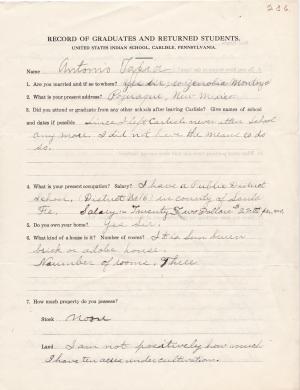 236
RECORD OF GRADUATES AND RETURNED STUDENTS.
UNITED STATES INDIAN SCHOOL, CARLISLE, PENNSYLVANIA.
Name Antonio Tapia
1. Are you married and if so to whom? Yes sir, to Genobia Montoya
2. What is your present address? Pojuaque, New Mexico
3. Did you attend or graduate from any other schools after leaving Carlisle? Give names of school
and dates if possible Since I left Carlisle never atten School
any more. I did not have the means to do
so.
4. What is your present occupation? Salary? I have a Public District
School, (District No 16) in county of Santa
Fe. Salary = Twenty two Dollars per mo.
5. Do you own your home? Yes Sir.
6. What kind of a house is it? Number of rooms? It is Sun burn
brick or adobe house.
Number of rooms. Three
7. How much property do you possess?
Stock None
Land I am not positively how much
I have ten acres under cultivation.